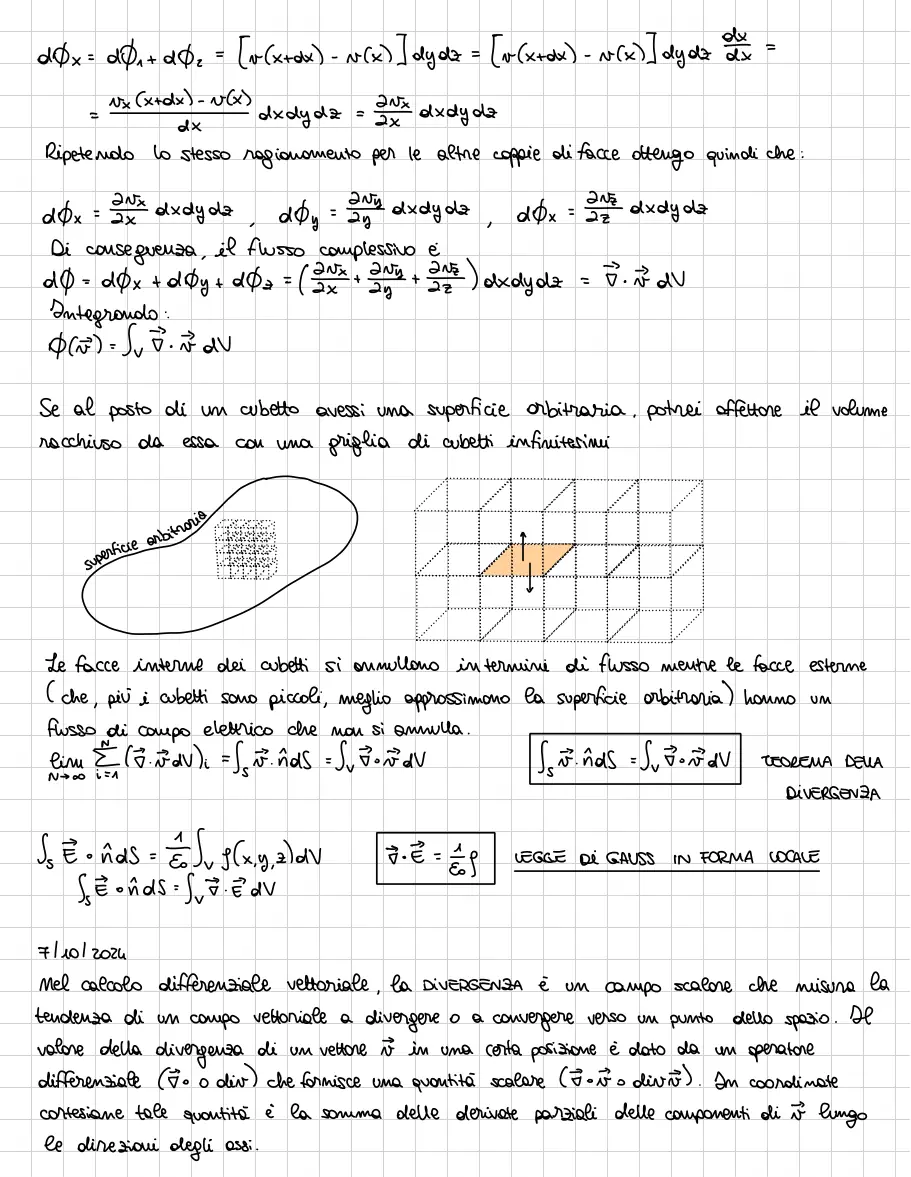 dϕₓ = dϕ₁ + dϕ₂ = [v(x+dx) - v(x)] dydz = [v(x+dx) - v(x)] dydz dx/dx =
= (vₓ(x+dx) - v(x))/dx dxdydz = ∂vₓ/∂x dxdydz
Ripetendo lo stesso ragionamento per le altre coppie di facce ottengo quindi che:
dϕₓ = ∂vₓ/∂x dxdydz , dϕ_y = ∂v_y/∂y dxdydz , dϕₓ = ∂v_z/∂z dxdydz
Di conseguenza, il flusso complessivo è
dϕ = dϕₓ + dϕ_y + dϕ_z = (∂vₓ/∂x + ∂v_y/∂y + ∂v_z/∂z) dxdydz = ∇⃗ · v⃗ dV
Integrando:
ϕ(v⃗) = ∫_V ∇⃗ · v⃗ dV
Se al posto di un cubetto avessi una superficie arbitraria, potrei affettare il volume
racchiuso da essa con una griglia di cubetti infinitesimi
superficie arbitraria
Le facce interne dei cubetti si annullano in termini di flusso mentre le facce esterne
(che, più i cubetti sono piccoli, meglio approssimano la superficie arbitraria) hanno un
flusso di campo elettrico che non si annulla.
lim N→∞ ∑_{i=1}^{N} (∇⃗ · v⃗ dV)ᵢ = ∫_S v⃗ · n̂ dS = ∫_V ∇⃗ ∘ v⃗ dV ∫_S v⃗ · n̂ dS = ∫_V ∇⃗ ∘ v⃗ dV TEOREMA DELLA
DIVERGENZA
∫_S E⃗ ∘ n̂ dS = 1/ε₀ ∫_V ρ(x,y,z) dV ∇⃗ · E⃗ = 1/ε₀ ρ LEGGE DI GAUSS IN FORMA LOCALE
∫_S E⃗ ∘ n̂ dS = ∫_V ∇⃗ · E⃗ dV
7/10/2024
Nel calcolo differenziale vettoriale, la DIVERGENZA è un campo scalare che misura la
tendenza di un campo vettoriale a divergere o a convergere verso un punto dello spazio. Il
valore della divergenza di un vettore v⃗ in una certa posizione è dato da un operatore
differenziale (∇⃗∘ o div) che fornisce una quantità scalare (∇⃗∘v⃗ o divv⃗). In coordinate
cartesiane tale quantità è la somma delle derivate parziali delle componenti di v⃗ lungo
le direzioni degli assi.